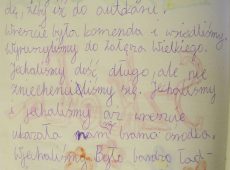 dę, żeby iż do autokani.
Wreszcie była komenda i wsiedliśmy.
Wyruszyliśmy do Łobżera Wielkiego.
Jechaliśmy dość długo, ale nie
zniechęcaliśmy się. Jechaliśmy
i jechaliśmy aż wreszcie
ukazała nam brama ośrodka.
Wjechaliśmy. Było bardzo ład-